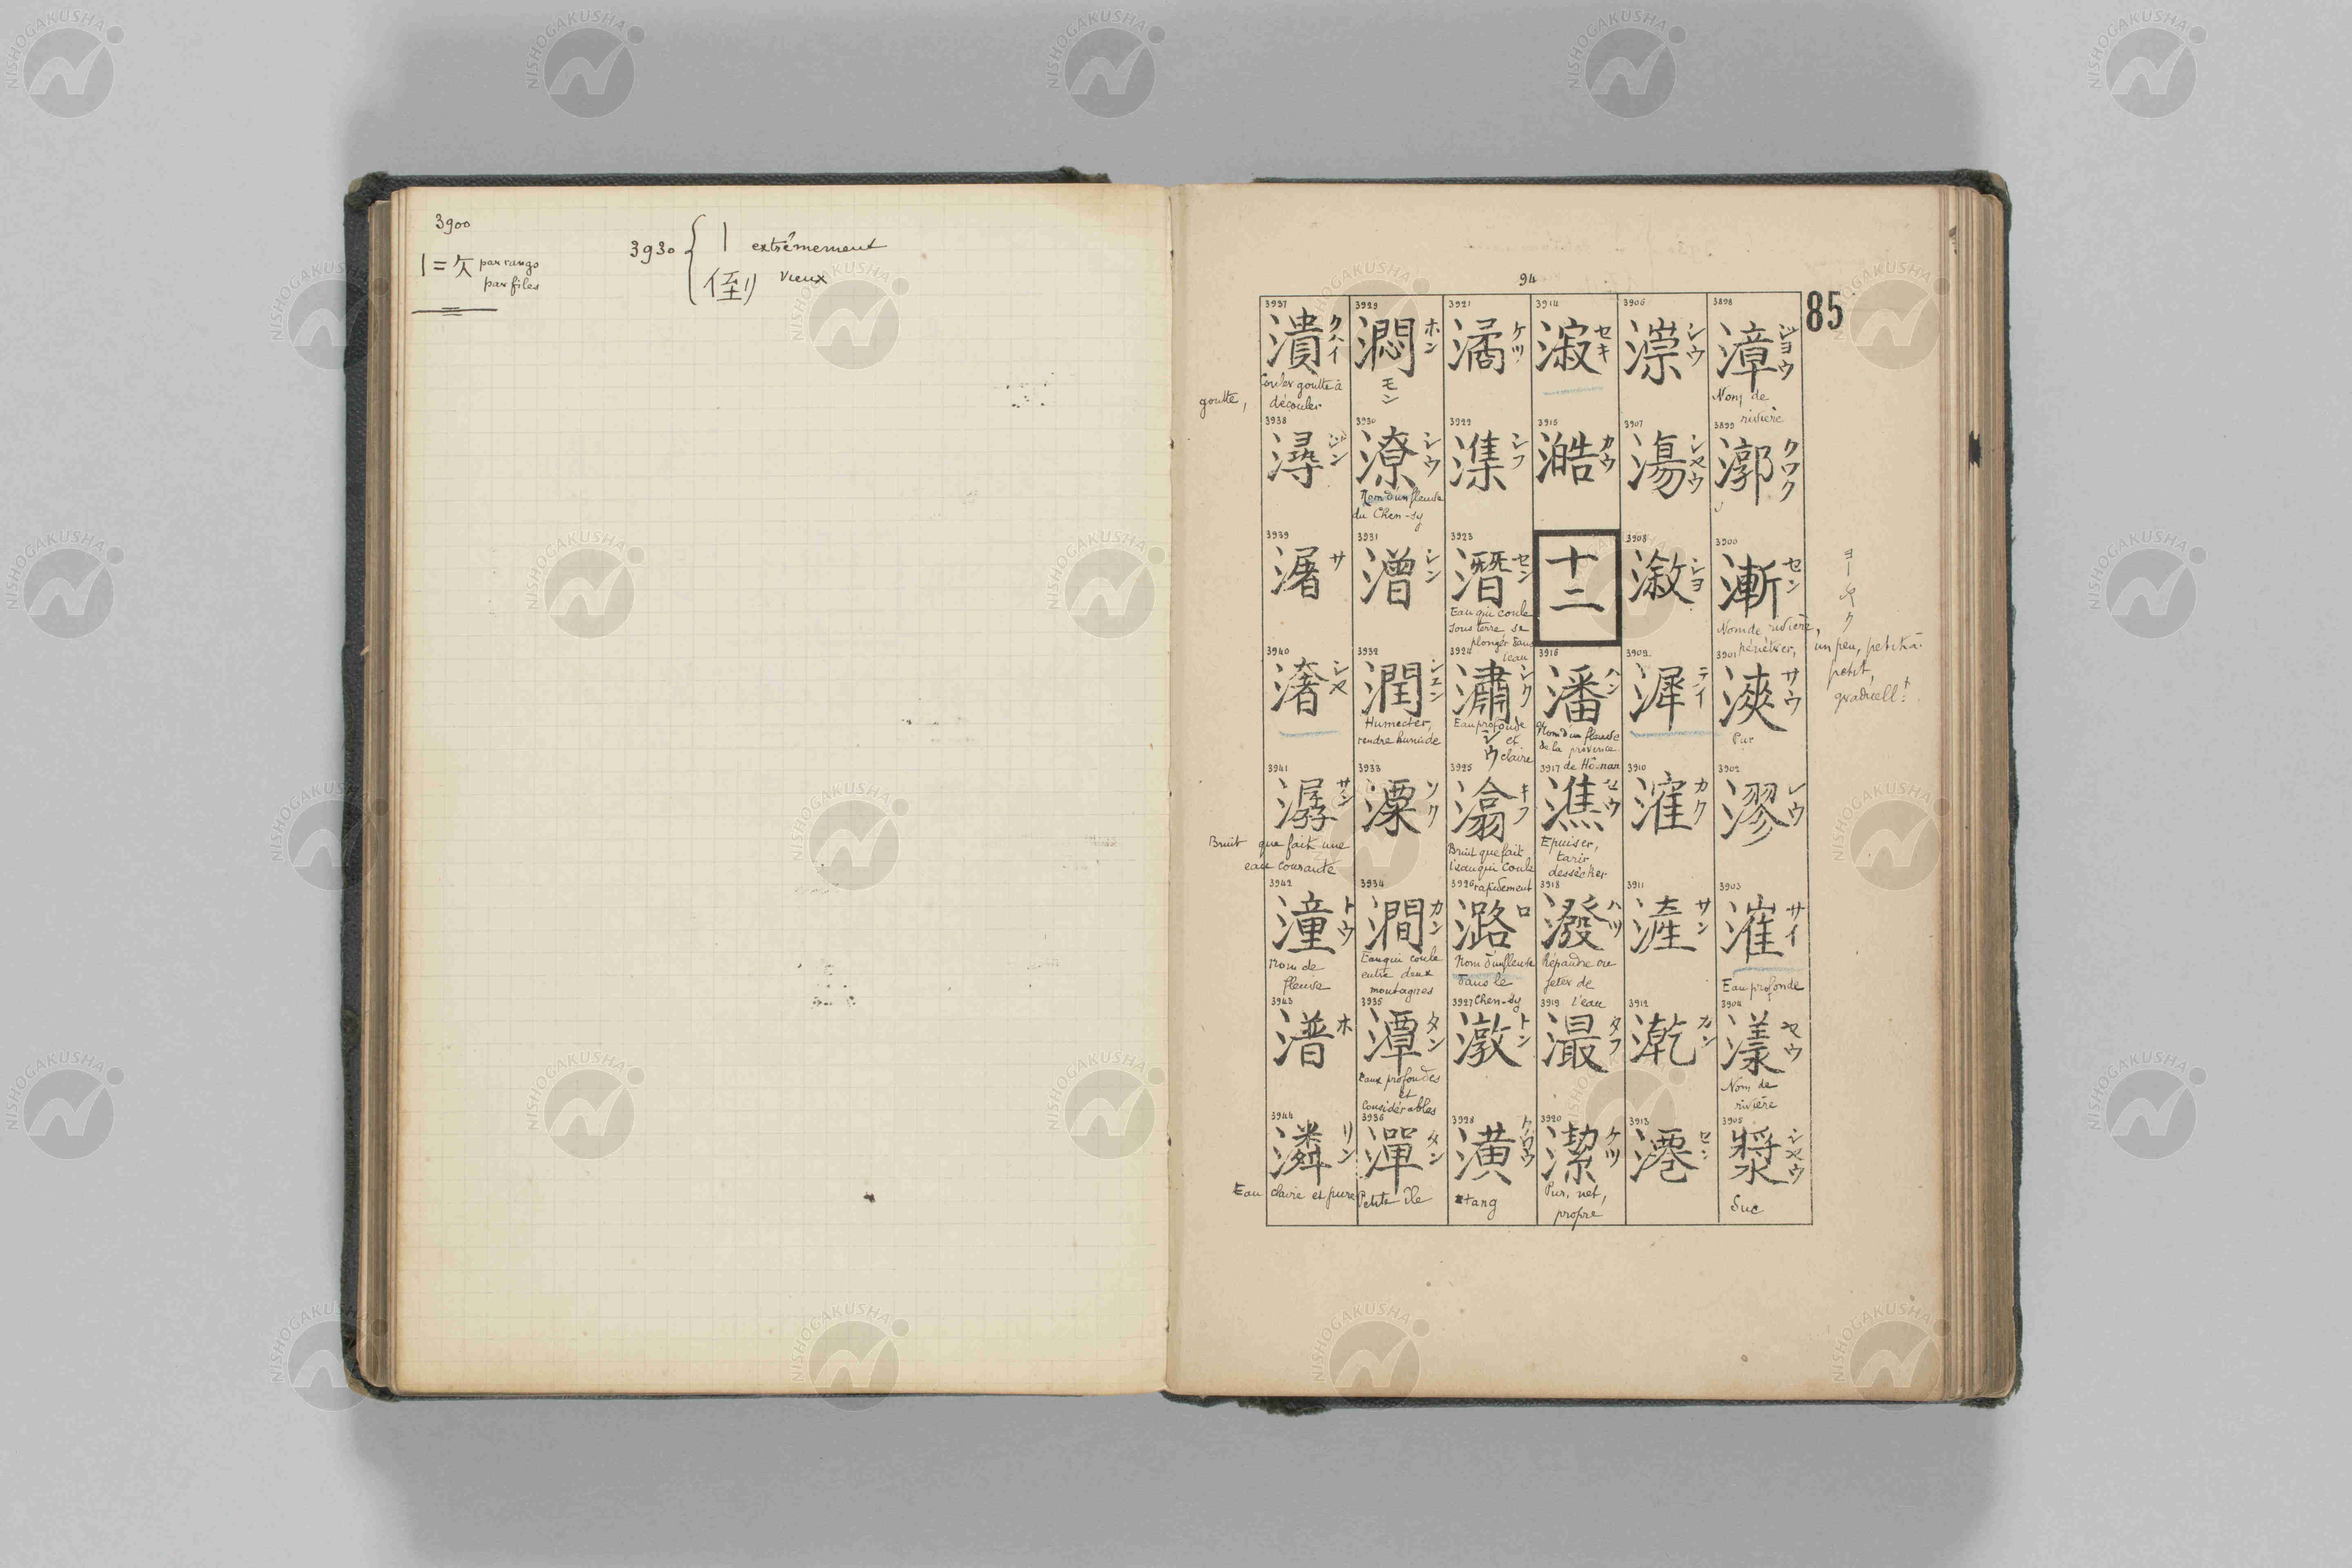 3900
3930
| extrêmement
| = 欠 par rangs
par files
vieux
94
85
3898
漳
ショウ
Nom de
rivière
3899
漷
クワク
3900
漸
セン
Nom de rivière,
pénétrer,
un peu, petit à
petit,
graduell!
3901
浹
サウ
Pur
3902
漻
レウ
3903
漼
サイ
Eau profonde
3904
漾
ヤウ
Nom de
rivière
3905
漿
シヤウ
Suc
3906
漴
シウ
3907
漡
シヤウ
3908
漵
シヨ
3909
漽
テイ
3910
漼
カク
3911
滻
サン
3912
漧
カン
3913
セン
3914
漃
セキ
3915
澔
カウ
十二
3916
潘
ハン
Nom d'un fleuve
de la province
de Ho-nan
3917
潐
セウ
Epuiser,
tarir
dessécher
3918
潑
ハツ
Répandre ou
jeter de
l'eau
3919
漐
タフ
3920
潔
ケツ
Pur, net,
propre
3921
潏
ケツ
3922
潗
シフ
3923
潛
セン
Eau qui coule
sous terre se
plonger dans
l'eau
3924
潚
シク
シウ
Eau profonde
et
claire
3925
潝
キフ
Bruit que fait
l'eau qui coule
rapidement
3926
潞
ロ
Nom d'un fleuve
dans le
Chen-sy
3927
潡
トン
3928
潢
クワウ
Etang
3929
潤
ホン
モン
3930
潦
Nom d'un fleuve
du Chen-sy
3931
潧
シン
3932
潤
Humecter,
rendre humide
3933
溧
ソク
3934
澗
カン
Eau qui coule
entre deux
montagnes
3935
潭
タン
Eaux profondes
et
Considérables
3936
潬
タン
Petite île
3937
潰
クハイ
Couler goutte à
goutte,
découler
3938
潯
ジン
3939
サ
3940
シヤ
3941
潺
サン
Bruit que fait une
eau courante
3942
潼
トウ
Nom de
fleuve
3943
潽
ホ
3944
潾
リン
Eau claire et pure